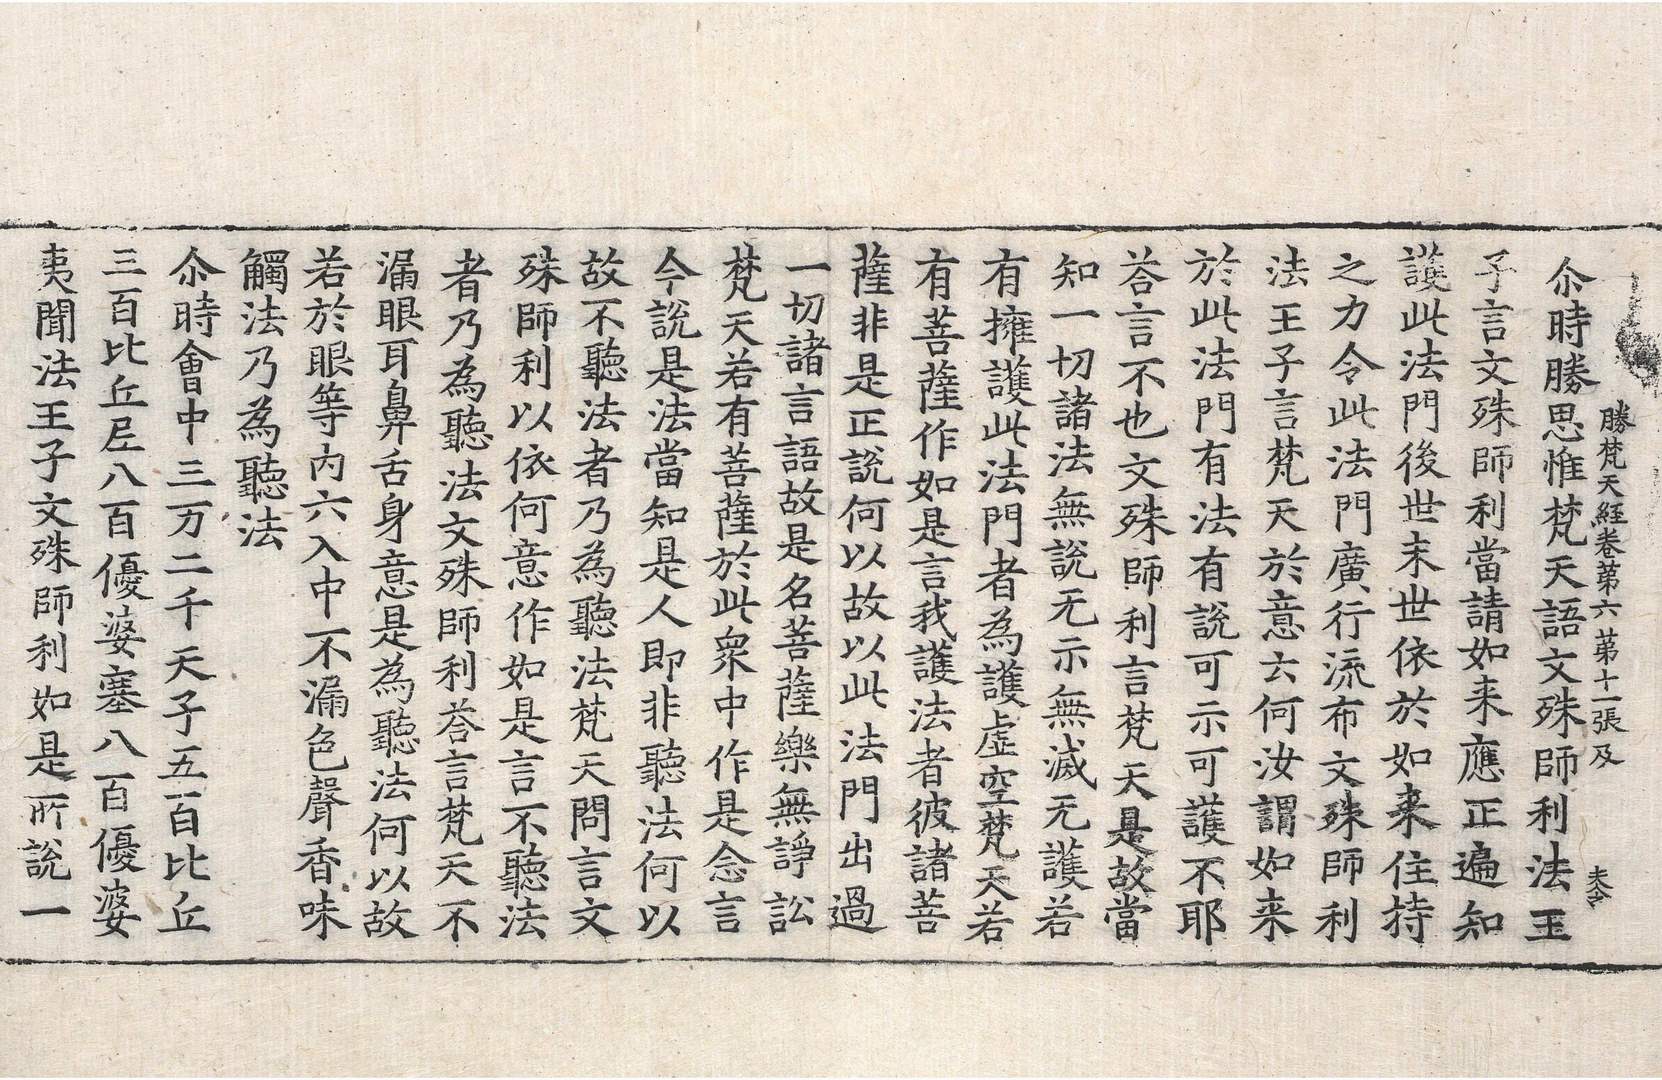 勝梵天經卷第六 第十一張 及 夫令
尒時勝思惟梵天語文殊師利法王
子言文殊師利當請如来應正遍知
護此法門後世末世依於如来住持
之力令此法門廣行流布文殊師利
法王子言梵天於意云何汝謂如来
於此法門有法有說可示可護不耶
荅言不也文殊師利言梵天是故當
知一切諸法無說无示無滅无護若
有擁護此法門者為護虛空梵天若
有菩薩作如是言我護法者彼諸菩
薩非是正說何以故以此法門出過
一切諸言語故是名菩薩樂無諍訟
梵天若有菩薩於此衆中作是念言
今說是法當知是人即非聽法何以
故不聽法者乃為聽法梵天問言文
殊師利以依何意作如是言不聽法
者乃為聽法文殊師利荅言梵天不
漏眼耳鼻舌身意是為聽法何以故
若於眼等内六入中不漏色聲香味
觸法乃為聽法
尒時會中三万二千天子五百比丘
三百比丘尼八百優婆塞八百優婆
夷聞法王子文殊師利如是所說一